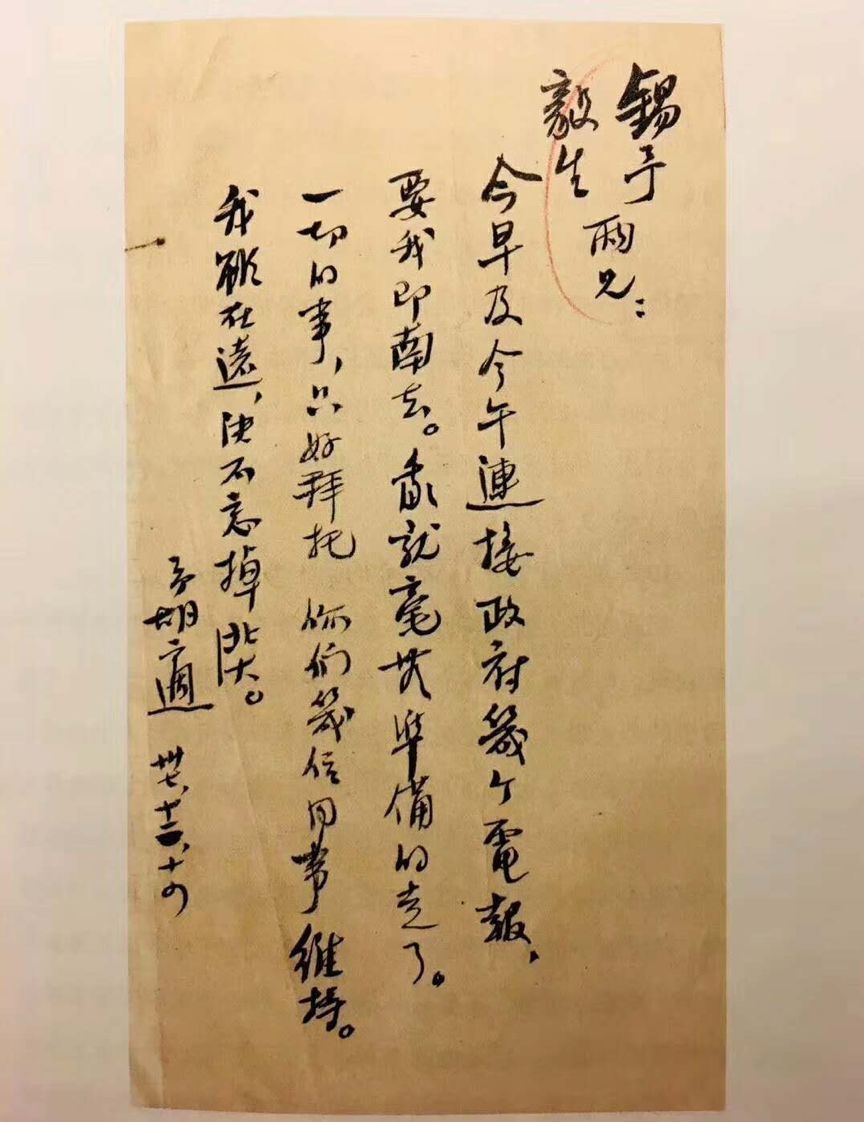 錫予
毅生 兩兄：
今早及今午連接政府幾个電報，
要我即南去。我就毫無準備的走了。
一切的事，只好拜托 你们幾位同事維持。
我雖在遠，决不忘掉北大。
弟胡適 卅七、十二、十四